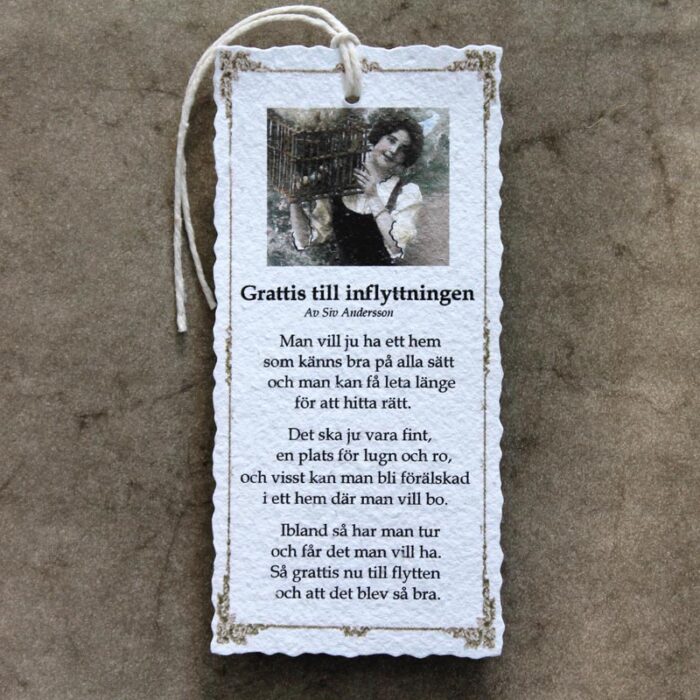 Grattis till inflyttningen
Av Siv Andersson
Man vill ju ha ett hem
som känns bra på alla sätt
och man kan få leta länge
för att hitta rätt.
Det ska ju vara fint,
en plats för lugn och ro,
och visst kan man bli förälskad
i ett hem där man vill bo.
Ibland så har man tur
och får det man vill ha.
Så grattis nu till flytten
och att det blev så bra.